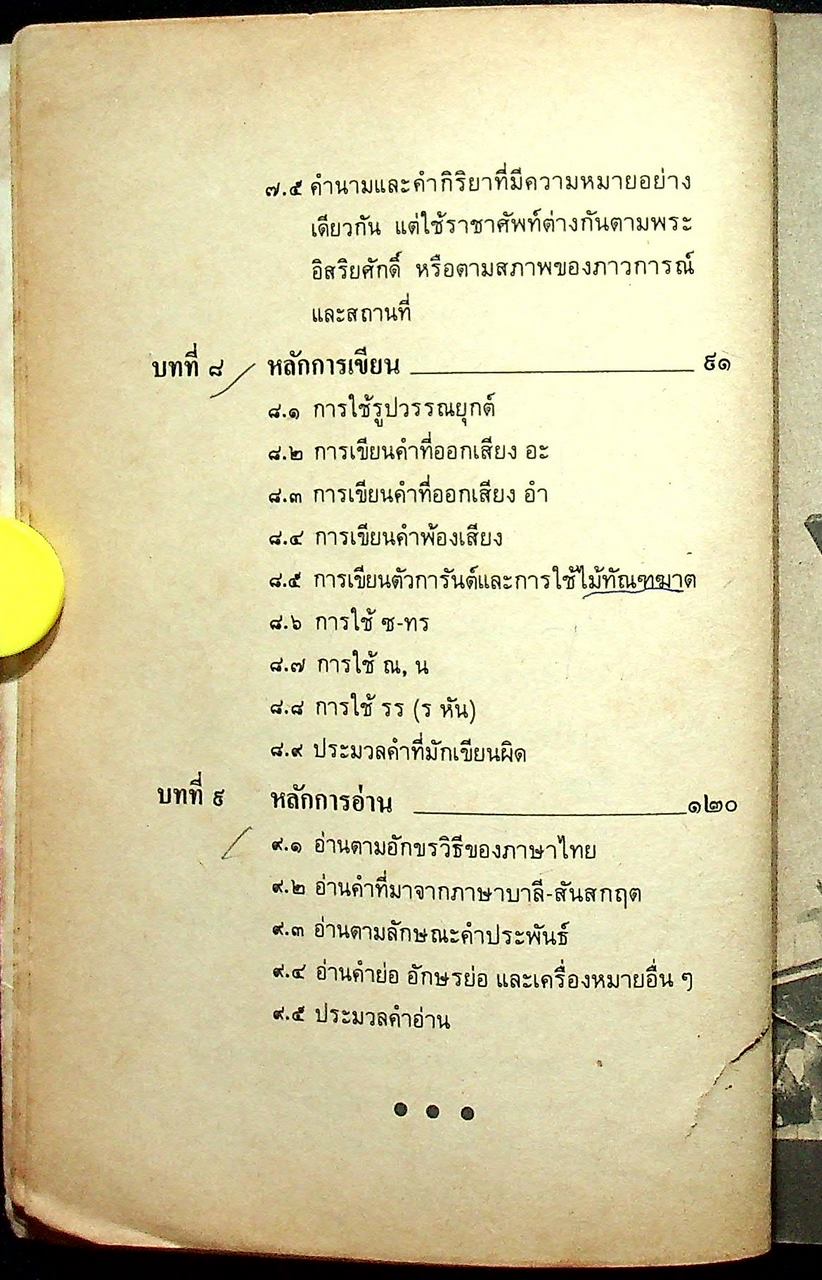 ๗.๕ คำนามและคำกิริยาที่มีความหมายอย่าง
เดียวกัน แต่ใช้ราชาศัพท์ต่างกันตามพระ
อิสริยศักดิ์ หรือตามสภาพของภาวการณ์
และสถานที่
บทที่ ๘ หลักการเขียน ๙๑
๘.๑ การใช้รูปวรรณยุกต์
๘.๒ การเขียนคำที่ออกเสียง อะ
๘.๓ การเขียนคำที่ออกเสียง อำ
๘.๔ การเขียนคำพ้องเสียง
๘.๕ การเขียนตัวการันต์และการใช้ไม้ทัณฑฆาต
๘.๖ การใช้ ซ-ทร
๘.๗ การใช้ ณ, น
๘.๘ การใช้ รร (ร หัน)
๘.๙ ประมวลคำที่มักเขียนผิด
บทที่ ๙ หลักการอ่าน ๑๒๐
๙.๑ อ่านตามอักขรวิธีของภาษาไทย
๙.๒ อ่านคำที่มาจากภาษาบาลี-สันสกฤต
๙.๓ อ่านตามลักษณะคำประพันธ์
๙.๔ อ่านคำย่อ อักษรย่อ และเครื่องหมายอื่น ๆ
๙.๕ ประมวลคำอ่าน